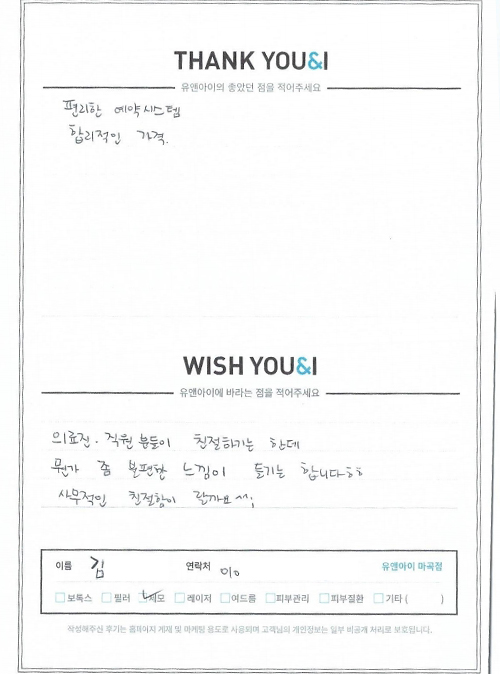 THANK YOU&I
유앤아이의 좋았던 점을 적어주세요
편리한 예약시스템
합리적인 가격.
WISH YOU&I
유앤아이에 바라는 점을 적어주세요
의료진. 직원분들이 친절하기는 한데
뭔가 좀 불편한 느낌이 들기는 합니다ㅎㅎ
사무적인 친절함이 랄까요^^;
이름 김 연락처 010 유앤아이 마곡점
보톡스 필러 제모 레이저 여드름 피부관리 피부질환 기타 ( )
작성해주신 후기는 홈페이지 게재 및 마케팅 용도로 사용되며 고객님의 개인정보는 일부 비공개 처리로 보호됩니다.